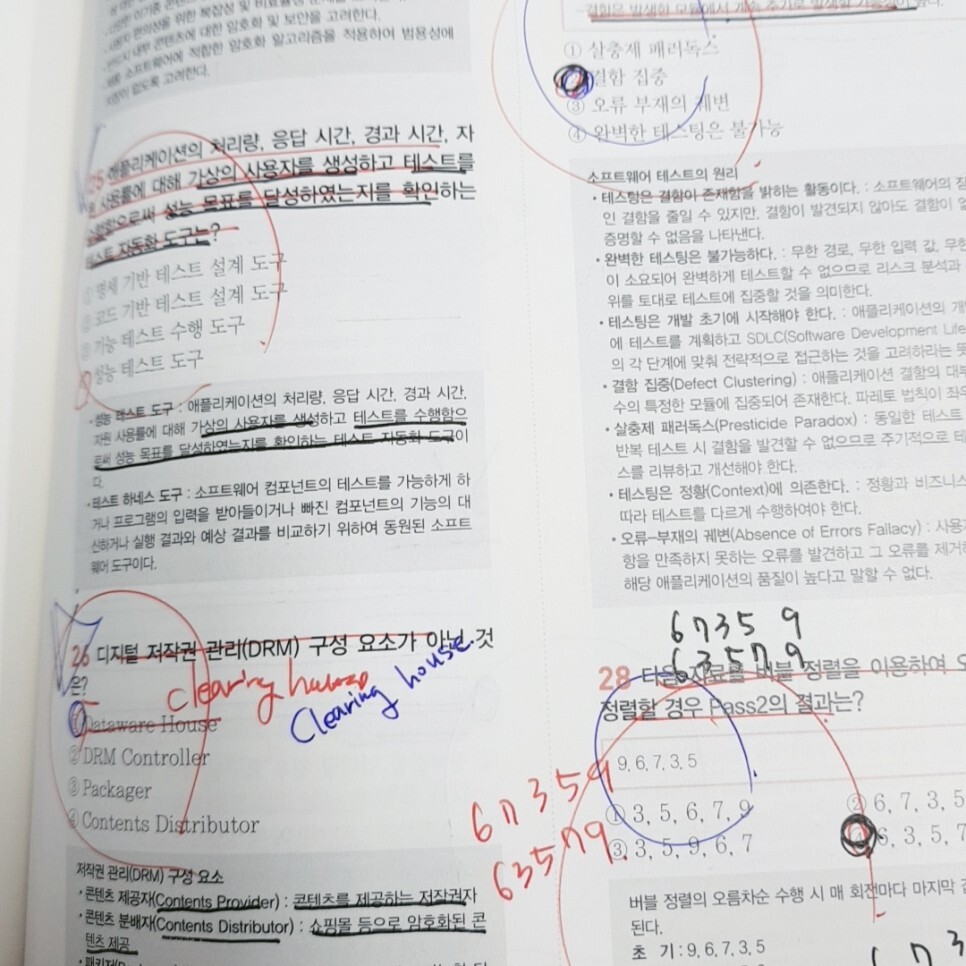 사용자 편의성을 위한 복잡성 및 비효율성 문제를
반드시 내부 콘텐츠에 대한 암호화 및 보안을 고려한다.
소프트웨어에 적합한 암호화 알고리즘을 적용하여 범용성에
지장이 없도록 고려한다.
25 애플리케이션의 처리량, 응답 시간, 경과 시간, 자
원 사용률에 대해 가상의 사용자를 생성하고 테스트를
수행함으로써 성능 목표를 달성하였는지를 확인하는
테스트 자동화 도구는?
① 명세 기반 테스트 설계 도구
② 코드 기반 테스트 설계 도구
③ 기능 테스트 수행 도구
성능 테스트 도구
• 성능 테스트 도구 : 애플리케이션의 처리량, 응답 시간, 경과 시간,
자원 사용률에 대해 가상의 사용자를 생성하고 테스트를 수행함으
로써 성능 목표를 달성하였는지를 확인하는 테스트 자동화 도구이
다.
• 테스트 하네스 도구 : 소프트웨어 컴포넌트의 테스트를 가능하게 하
거나 프로그램의 입력을 받아들이거나 빠진 컴포넌트의 기능의 대
신하거나 실행 결과와 예상 결과를 비교하기 위하여 동원된 소프트
웨어 도구이다.
26 디지털 저작권 관리(DRM) 구성 요소가 아닌 것
은?
clearing house
Clearing house.
① Dataware House
② DRM Controller
③ Packager
④ Contents Distributor
저작권 관리(DRM) 구성 요소
• 콘텐츠 제공자(Contents Provider) : 콘텐츠를 제공하는 저작권자
• 콘텐츠 분배자(Contents Distributor) : 쇼핑몰 등으로 암호화된 콘
텐츠 제공
결함은 발생한 모듈에서 계속 추가로 발생할 가능성이 높다.
① 살충제 패러독스
결함 집중
③ 오류 부재의 궤변
④ 완벽한 테스팅은 불가능
소프트웨어 테스트의 원리
• 테스팅은 결함이 존재함을 밝히는 활동이다. : 소프트웨어의
인 결함을 줄일 수 있지만, 결함이 발견되지 않아도 결함이
증명할 수 없음을 나타낸다.
• 완벽한 테스팅은 불가능하다. : 무한 경로, 무한 입력 값, 무한
이 소요되어 완벽하게 테스트할 수 없으므로 리스크 분석과
위를 토대로 테스트에 집중할 것을 의미한다.
• 테스팅은 개발 초기에 시작해야 한다. : 애플리케이션의 개
에 테스트를 계획하고 SDLC(Software Development Life
의 각 단계에 맞춰 전략적으로 접근하는 것을 고려하라는 뜻
• 결함 집중(Defect Clustering) : 애플리케이션 결함의 대부
수의 특정한 모듈에 집중되어 존재한다. 파레토 법칙이 좌우
• 살충제 패러독스(Presticide Paradox) : 동일한 테스트
반복 테스트 시 결함을 발견할 수 없으므로 주기적으로 테
스를 리뷰하고 개선해야 한다.
• 테스팅은 정황(Context)에 의존한다. : 정황과 비즈니스
따라 테스트를 다르게 수행하여야 한다.
• 오류-부재의 궤변(Absence of Errors Fallacy) : 사용
항을 만족하지 못하는 오류를 발견하고 그 오류를 제거
해당 애플리케이션의 품질이 높다고 말할 수 없다.
6 7 3 5 9
6 3 5 7 9
28 다음 자료를 버블 정렬을 이용하여 오
정렬할 경우 Pass2의 결과는?
9, 6, 7, 3, 5
6 7 3 5 9
6 3 5 7 9.
① 3, 5, 6, 7, 9
② 6, 7, 3, 5
③ 3, 5, 9, 6, 7
6, 3, 5, 7
버블 정렬의 오름차순 수행 시 매 회전마다 마지막
된다.
초 기 : 9, 6, 7, 3, 5
6 7 3